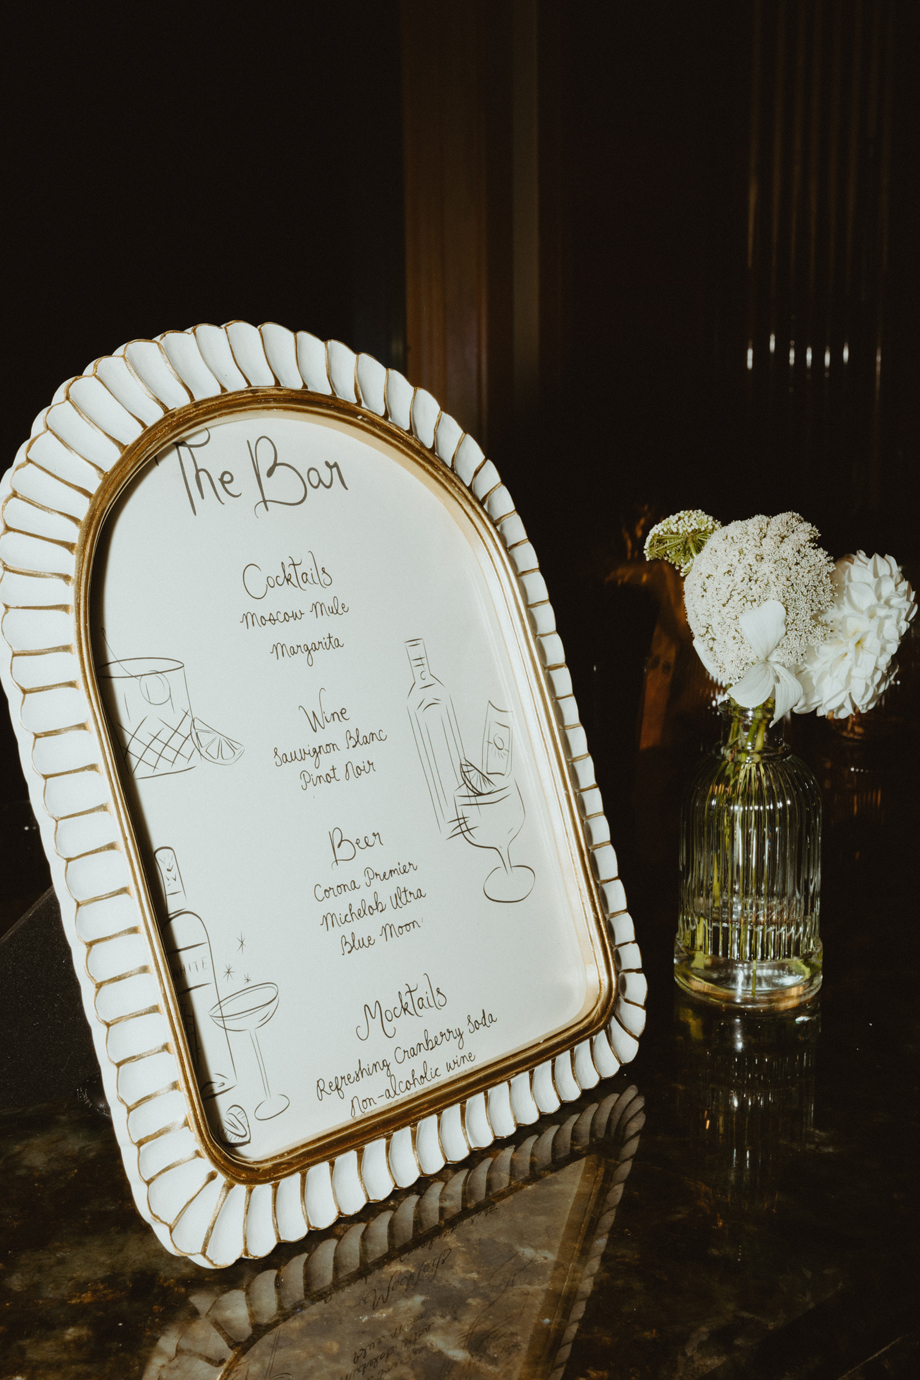 The Bar
Cocktails
Moscow Mule
Margarita
Wine
Sauvignon Blanc
Pinot Noir
Beer
Corona Premier
Michelob Ultra
Blue Moon
Mocktails
Refreshing Cranberry Soda
Non-alcoholic wine